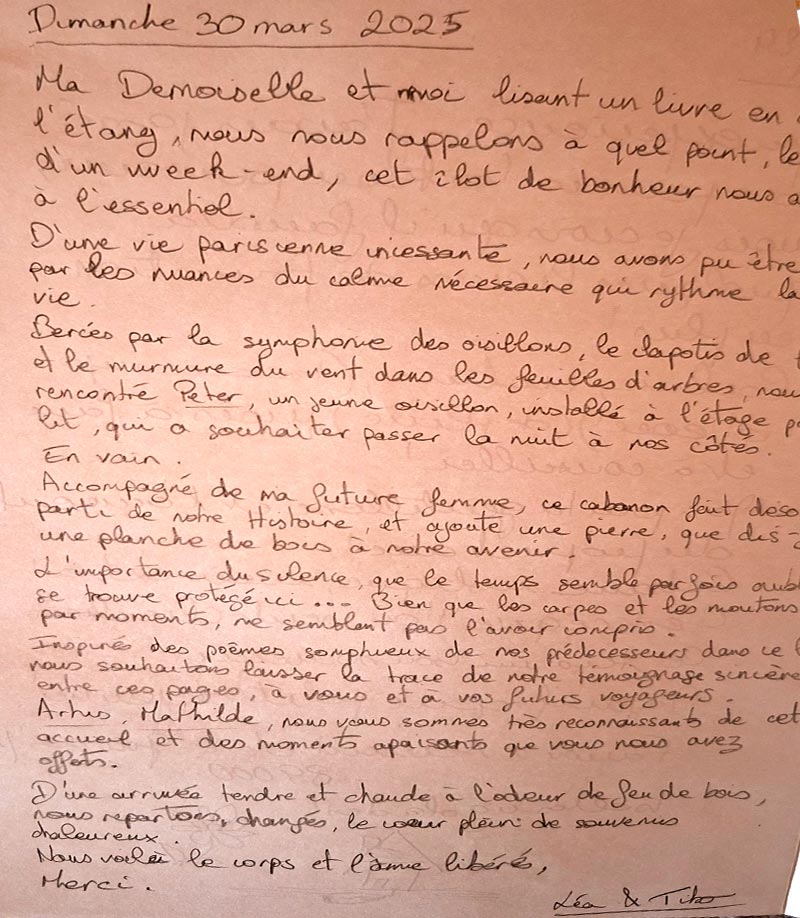 Dimanche 30 mars 2025
Ma Demoiselle et moi lisant un livre en
l'étang, nous nous rappelons à quel point, le
d'un week-end, cet îlot de bonheur nous a
à l'essentiel.
D'une vie parisienne incessante, nous avons pu être
par les nuances du calme nécessaire qui rythme la
vie.
Bercés par la symphonie des oisillons, le clapotis de
et le murmure du vent dans les feuilles d'arbres, nous
rencontré Peter, un jeune oisillon, installé à l'étage
lit, qui a souhaiter passer la nuit à nos côtés.
En vain.
Accompagné de ma future femme, ce cabanon fait
parti de notre Histoire, et ajoute une pierre, que dis-
une planche de bois à notre avenir.
L'importance du silence, que le temps semble parfois
se trouve protégé ici... Bien que les carpes et les moutons
par moments, ne semblent pas l'avoir compris.
Inspirés des poèmes somptueux de nos prédecesseurs dans ce
nous souhaitons laisser la trace de notre témoignage sincère
entre ces pages, à vous et à vos futurs voyageurs.
Artus, Mathilde, nous vous sommes très reconnaissants de cet
accueil et des moments apaisants que vous nous avez
offerts.
D'une arrivée tendre et chaude à l'odeur de feu de bois,
nous repartons, changés, le cœur plein de souvenirs
chaleureux.
Nous voilà le corps et l'âme libérés,
Merci.
Léa &